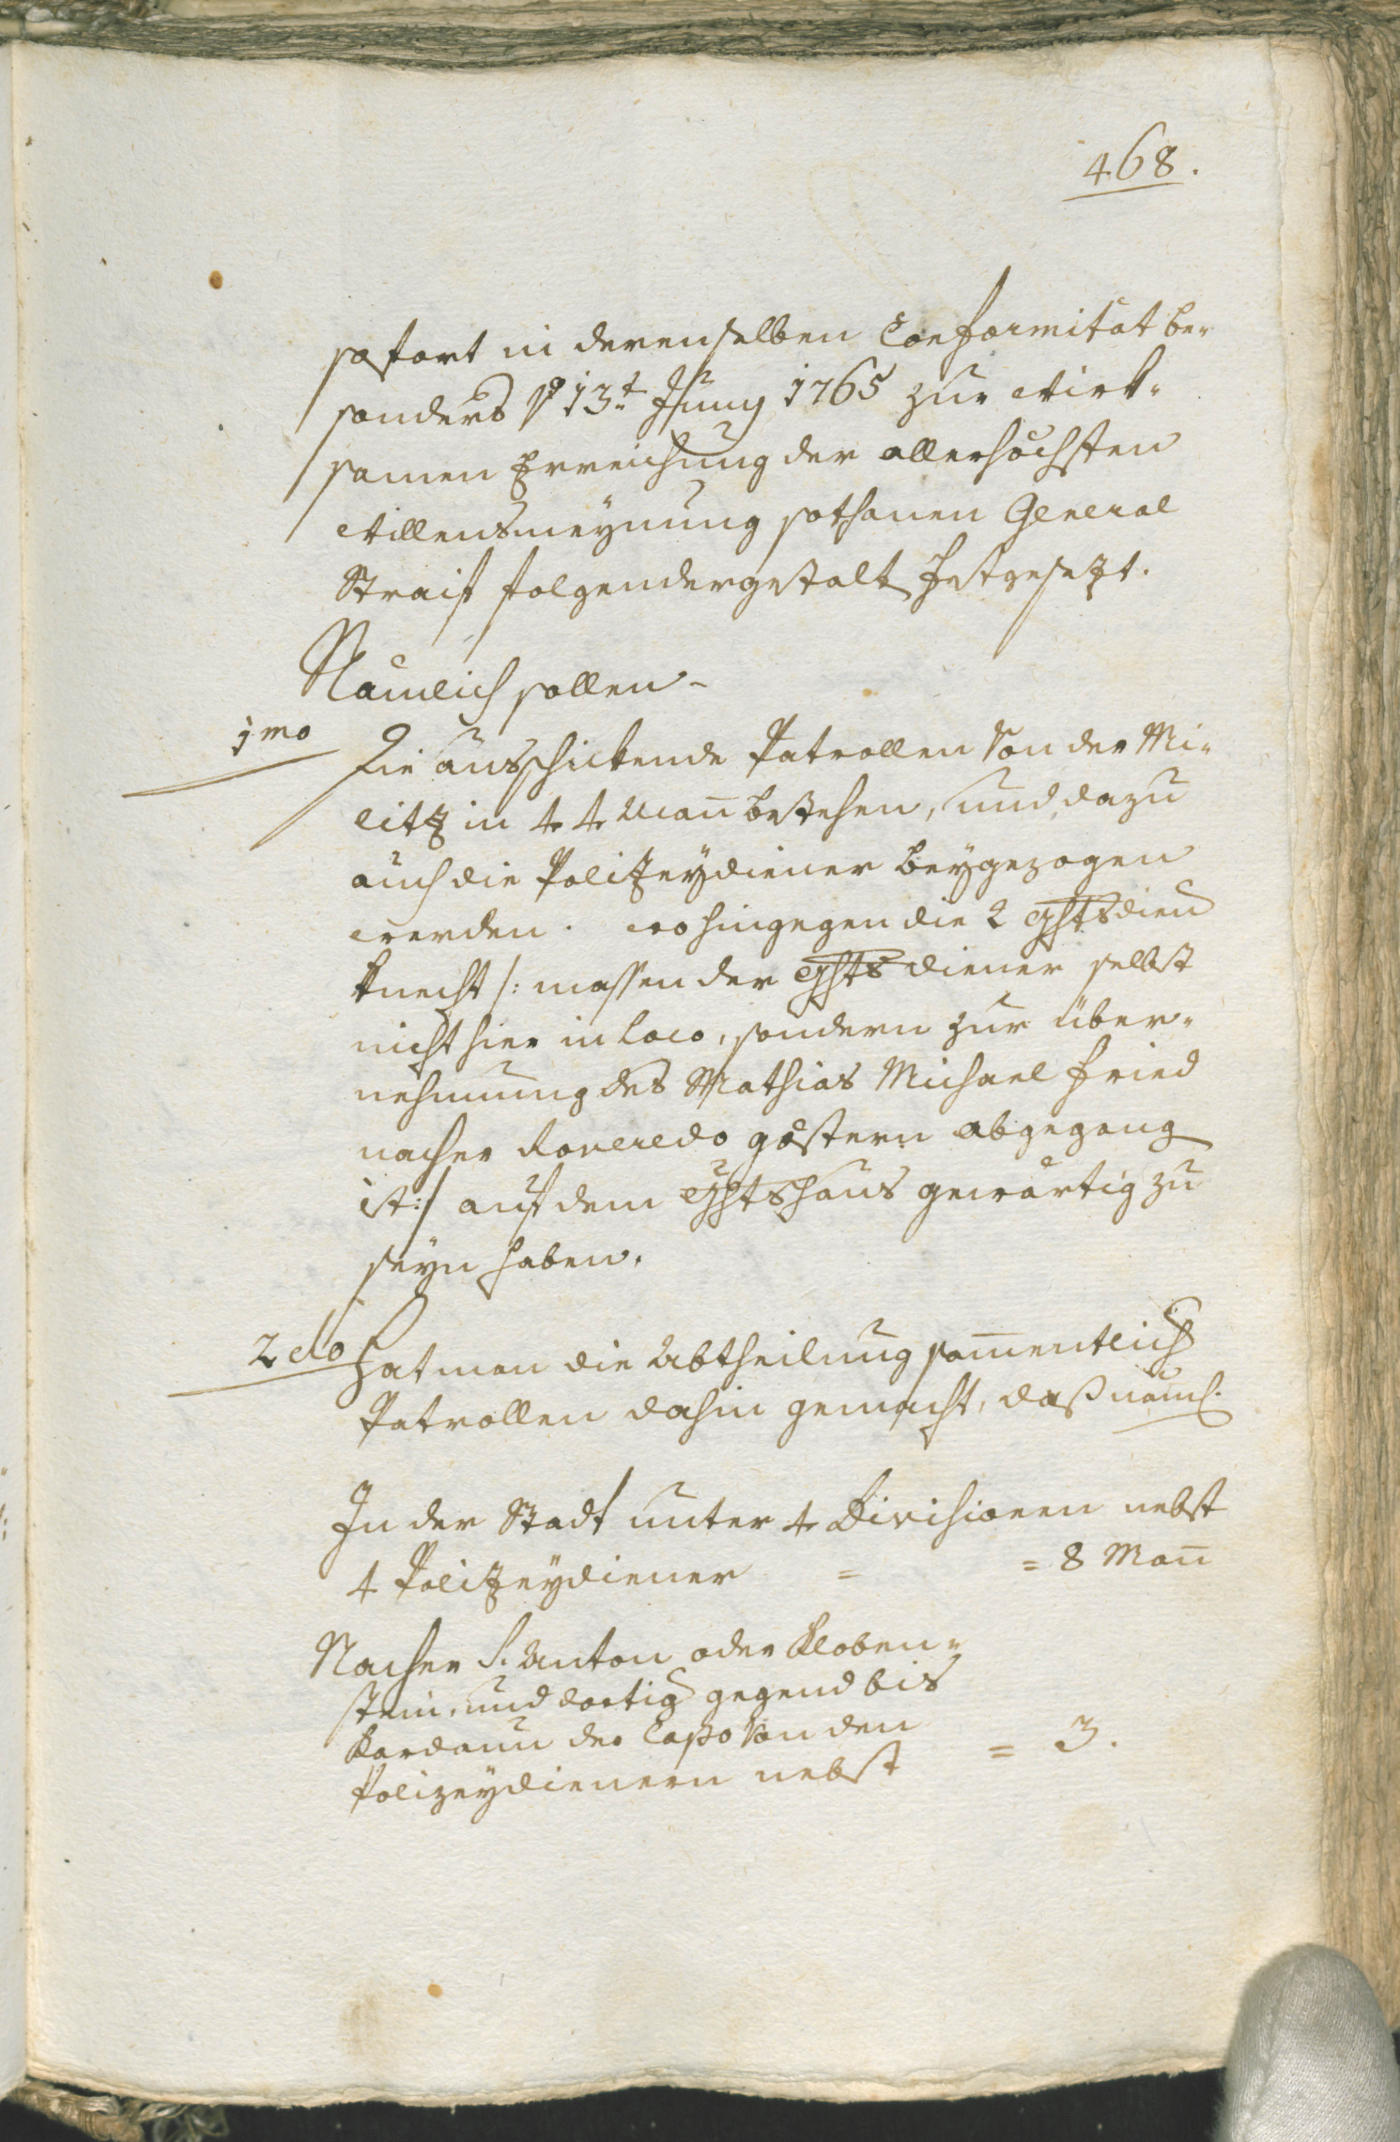 468.
sofort in derenselben Conformitat be-
sonders de 13t Juny 1765 zur wirk-
samen Erreichung der allerhöchsten
Willensmeynung sothanen General
Straif folgendergestalt festgesezt.
Nämlich sollen
1mo
Die ausschickende Patrollen von der Mi-
litz in 4 4 Mañ bestehen, und dazu
auch die Politzeydiener beygezogen
werden. wohingegen die 2 Ghtsdien
knecht /: massen der Ghtsdiener selbst
nicht hier in loco, sondern zur über-
nehmung des Mathias Michael Fried
nacher Roveredo göstern abgegang
ist :/ auf dem Ghtshaus gewärtig zu
seyn haben.
2do
Hat man die Abtheilung sam̄entlich
Patrollen dahin gemacht, daß nämch.
In der Stadt unter 4 Divisionen nebst
4 Politzeydiener = = 8 Mañ
Nacher S. Anton oder Kloben-
stein, und dortig gegend bis
Kardaun der Capo von den
Polizeydienern nebst = 3.